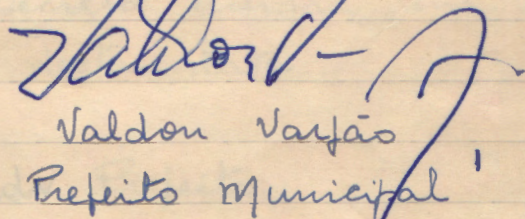 Valdon Varjão
Prefeito Municipal